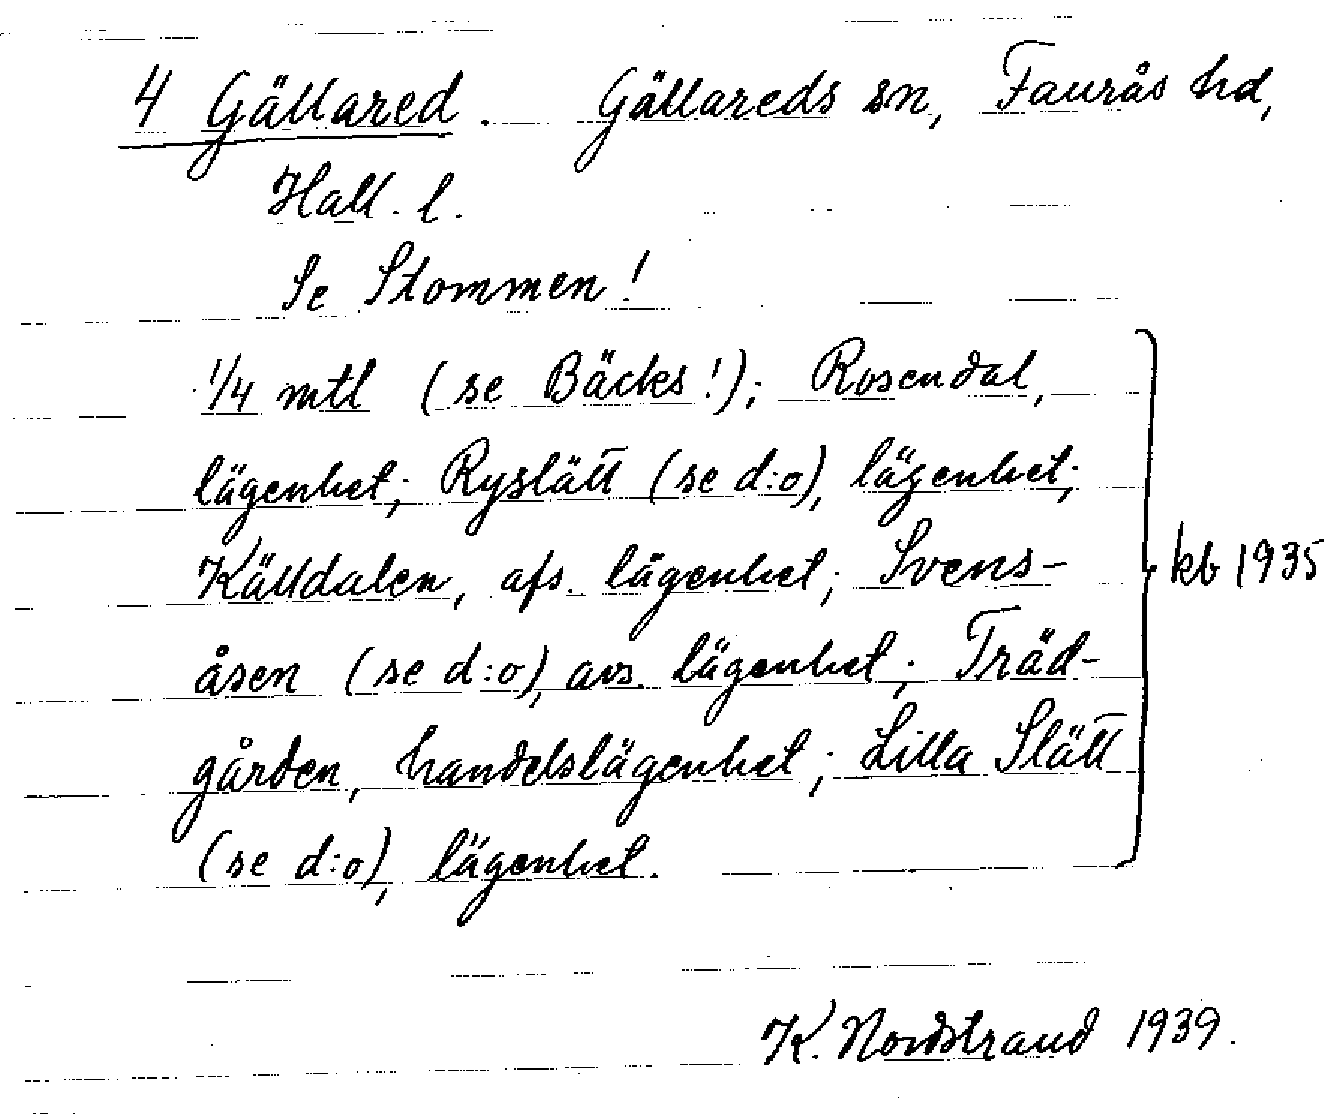 4 Gällared. Gällareds sn, Faurås hd,
Hall. l.
Se Stommen!
1/4 mtl (se Bäcks!); Rosendal,
lägenhet; Ryslätt (se d:o), lägenhet;
Källdalen, afs. lägenhet; Svens-
åsen (se d:o), avs. lägenhet; Träd-
gården, handelslägenhet; Lilla Slätt
(se d:o), lägenhet.
kb 1935
K. Nordstrand 1939.